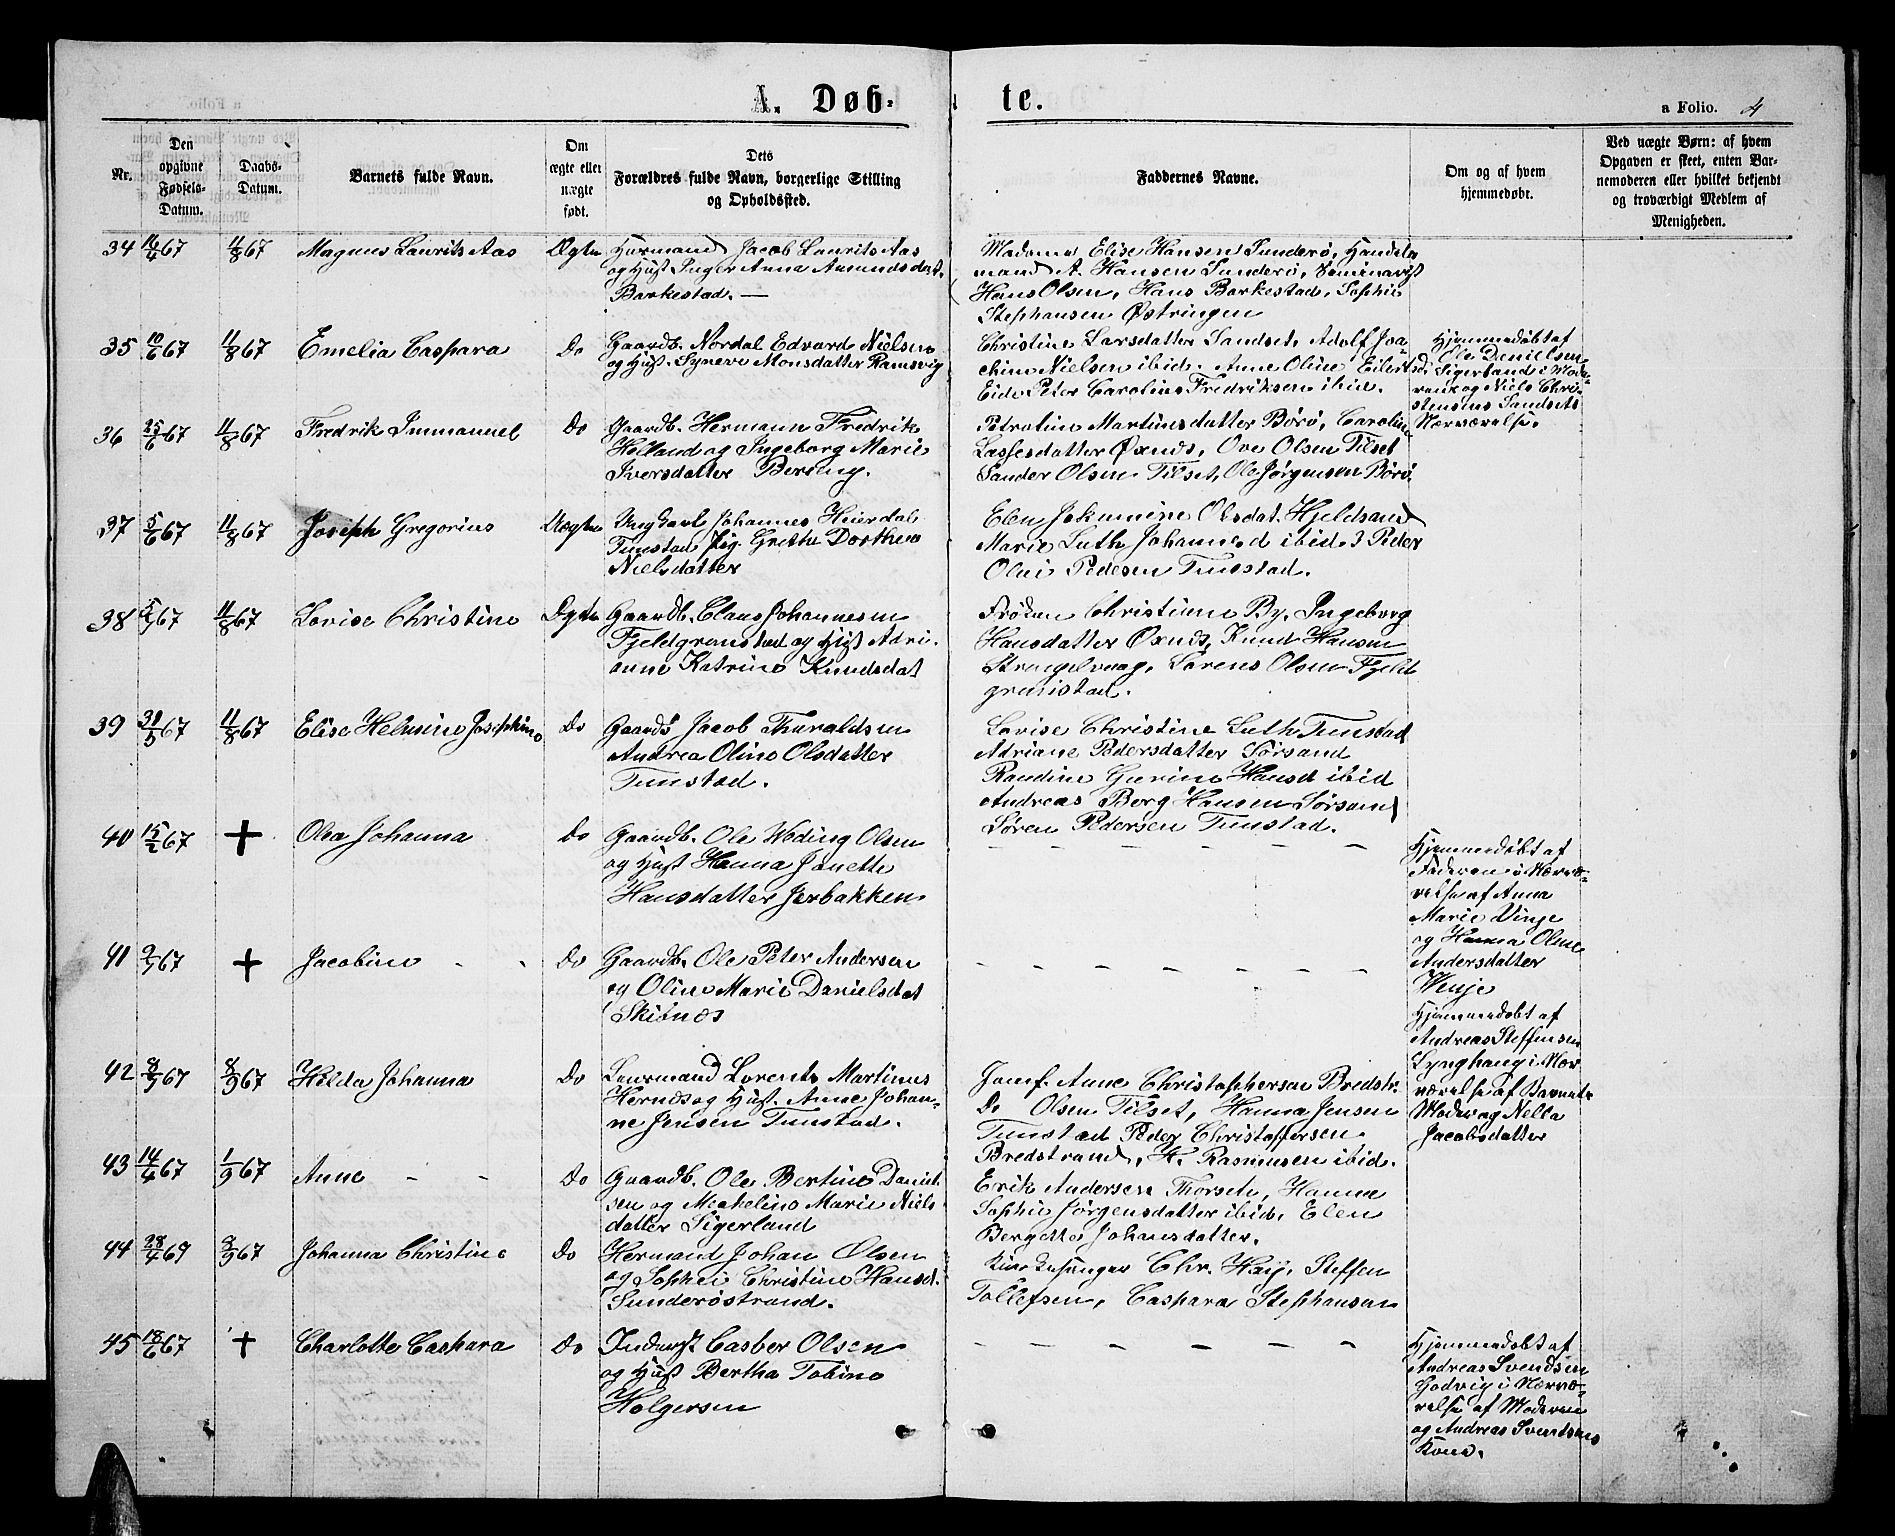 A. Døb-
te.
a Folio. 4
Nr.
Den
opgivne
Fødsels-
Datum.
Daabs-
Datum.
Barnets fulde Navn.
Om
ægte eller
uægte
født.
Dets
Forældres fulde Navn, borgerlige Stilling
og Opholdssted.
Faddernes Navne.
Om og af hvem
hjemmedøbt.
Ved uægte Børn: af hvem
Opgaven er skeet, enten Bar-
nemoderen eller hvilket bekjendt
og troværdigt Medlem af
Menigheden.
34 16/6 67 11/8 67 Magnus Laurits Aas Ægte
Huusmand Jacob Laurits Aas
og Hust. Inger Anna Amundsdat.
Barkestad. —
Madame Elise Hansen Sunderø, Handels
mand A. Hansen Sunderø, Seminarist
Hans Olsen, Hans Barkestad, Sophie
Stephansen Østringen
35 10/6 67 11/8 67 Emelia Caspara Do
Gaardb. Nordal Edvard Nielsen
og Hust. Synere Monsdatter Ramsvig
Christine Larsdatter Sandset, Adolf Joa-
chim Nielsen ibid. Anne Oline Eilertsd
Eide Peter Carolius Fredriksen ibid.
Hjemmedøbt af
Ole Danielsen
Sigerland i Mode-
rens og Niels Chri-
stensens Sandsets
Nærværelse.
36 25/6 67 11/8 67 Fredrik Immanuel Do
Gaardb. Hermann Fredrik
Helland og Ingeborg Marie
Iversdatter
Martinsdatter Børø, Caroline
Lassesdatter Øxnes, Ove Olsen Tilset
Sander Olsen Tilset, Ole Jørgensen Børø
37 5/6 67 11/8 67 Joseph Gregorius Uægte
Ungkarl Johannes Heierdal
Tunstad Pig. Grethe Dorthea
Nielsdatter
Elen Jokumine Olsdat. Hjeldsand
Marie Luth Johannesd ibid.
Olai Pedersen Tunstad.
38 67 11/8 67 Lovise Christine Ægte
Gaardb. Claus Johannesen
Fjeldgrunstad og Hust Adri-
anne Katrine Knudsdat
Frøken Christiane By, Ingeborg
Hansdatter Øxnes, Knud Hansen
Strengelvaag, Lorens Olsen Fjeld
grunstad.
39 31/5 67 11/8 67 Elise Helmine Josephine Do
Gaardb Jacob Tharaldsen
Andrea Oline Olsdatter
Tunstad.
Lovise Christine Luth Tunstad
Adriane Pedersdatter Sørsand
Randine Gurine Hansd ibid
Andreas Berg Hansen Sørsand
Søren Pedersen Tunstad.
40 15/2 67 + Olea Johanna Do
Gaardb. Ole Weding Olsen
og Hust Hanna Janette
Hansdatter Jorbakken
Hjemmedøbt af
Faderen i Nærvæ-
relse af Anna
Marie Vinje
og Hanna Olsine
Andersdatter
Winje
41 9/7 67 + Jacobine Do
Gaardb. Ole Peter Andersen
og Oline Marie Danielsdat
Skibnes
Hjemmedøbt af
Andreas Steffensen
Lynghaug i Nær-
værelse af Barnets
Moder og Nella
Jacobsdatter
42 67 8/9 67 Hilda Johanna Do
Leiermand Lorents Martinus
Hernes og Hust. Anne Johan-
ne Jensen Tunstad.
Jomf. Anne Christophersen Bredstr.
Do Olsen Tilset, Hanna Jensen
Tunstad Peder Christoffersen
Bredstrand, H. Rasmussen ibid.
43 14/4 67 1/9 67 Anne Do
Gaardb. Ole Bertinus Daniel
sen og Methelino Marie Niels
datter Sigerland
Erik Andersen Thorset, Hanna
Sophie Jørgensdatter ibid, Elen
Bergette Johansdatter.
44 28/4 67 67 Johanna Christine Do
Johan Olsen
og Sophei Christine Hansd.
Sunderøstrand.
Kirkesanger Chr. Haij, Steffen
Tollefsen, Caspara Stephansen
45 18/6 67 + Charlotte Caspara Do
Inderst Casber Olsen
og Hust Bertha Tobine
Holgersen
Hjemmedøbt af
Andreas Svendsen
Godvig i Nærvæ-
relse af Moderen
og Andreas Svendsens
Kone.